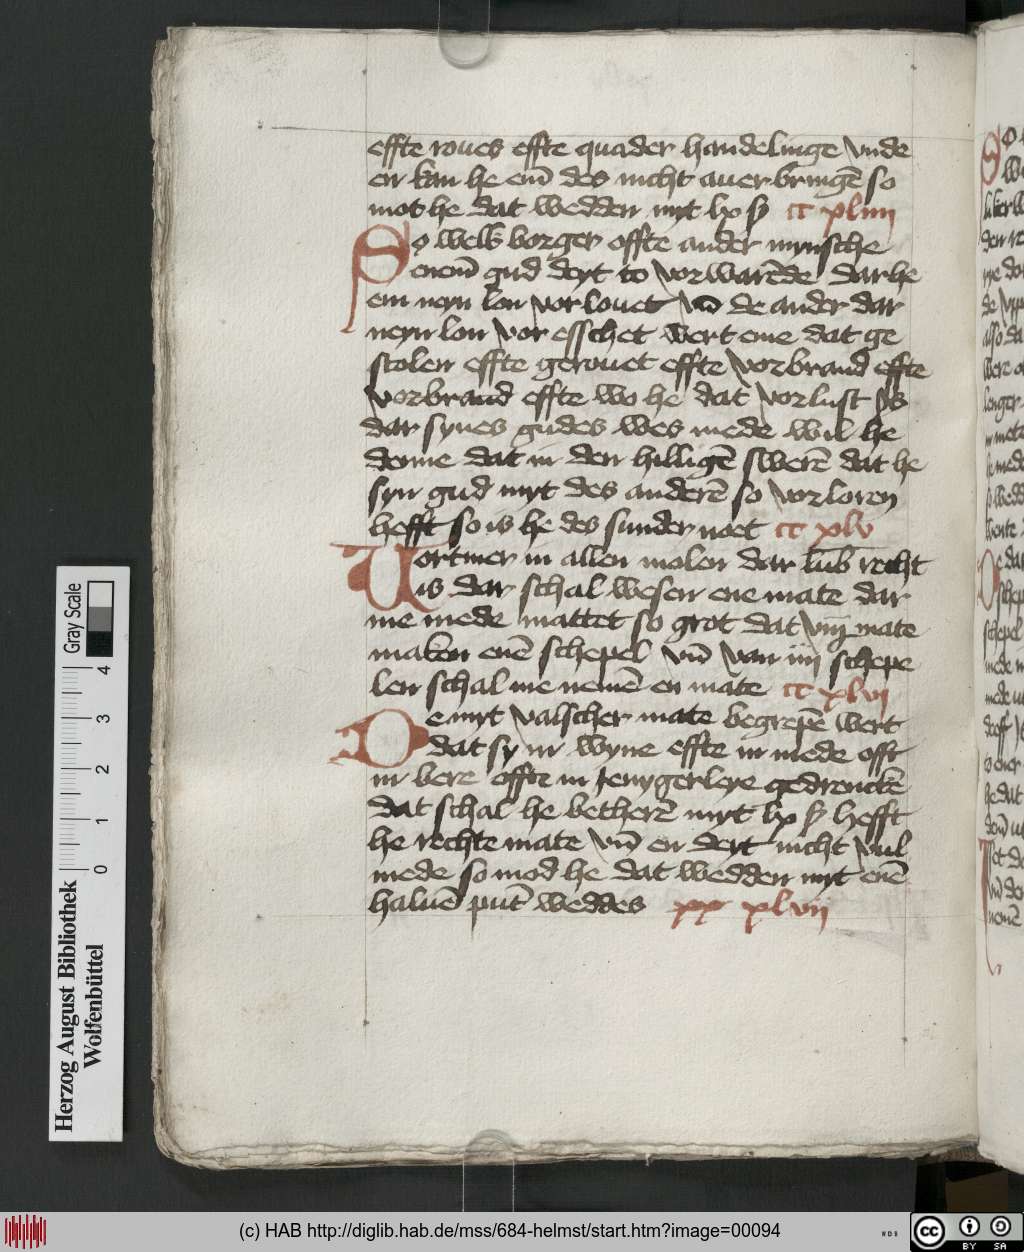 effte roues effte quader handelinge vnde
en kan he em̄ des nicht auer bringē so
mot he dat wedden myt lx ß cc xliiii
So welk borger offte ander mynsche
enem̄ gud deyt to vorwarēde dar he
em neyn lon vorlouet vn̄ de ander dar
neyn lon vor esschet wert eme dat ge
stolen effte gerouet effte vorbrand effte
vorbrand effte wo he dat vorlust ys
dar synes gudes wes mede wil he
denne dat in den hilligē swerē dat he
syn gud myt des anderē so vorloren
hefft so is he des sunder noet cc xlv
Vortmer in allen molen dar lub recht
is dar schal wesen ene mate dar
me mede mattet so grot dat viij mate
maken enē schepel vn̄ van iiij schepe
len schal me nemē en mate cc xlvi
De myt valscher mate begrepē wert
dat sy in wyne effte in mede offt
in bere offte in jenygerleye gedrenckē
dat schal he betherē myt lx ß hefft
he rechte mate vn̄ en deyt nicht vul
mede so mod he dat wedden myt enē
haluē pūt weddes xlvii
Herzog August Bibliothek
Wolfenbüttel
Gray Scale
0 1 2 3 4
(c) HAB http://diglib.hab.de/mss/684-helmst/start.htm?image=00094
WDB
cc BY SA